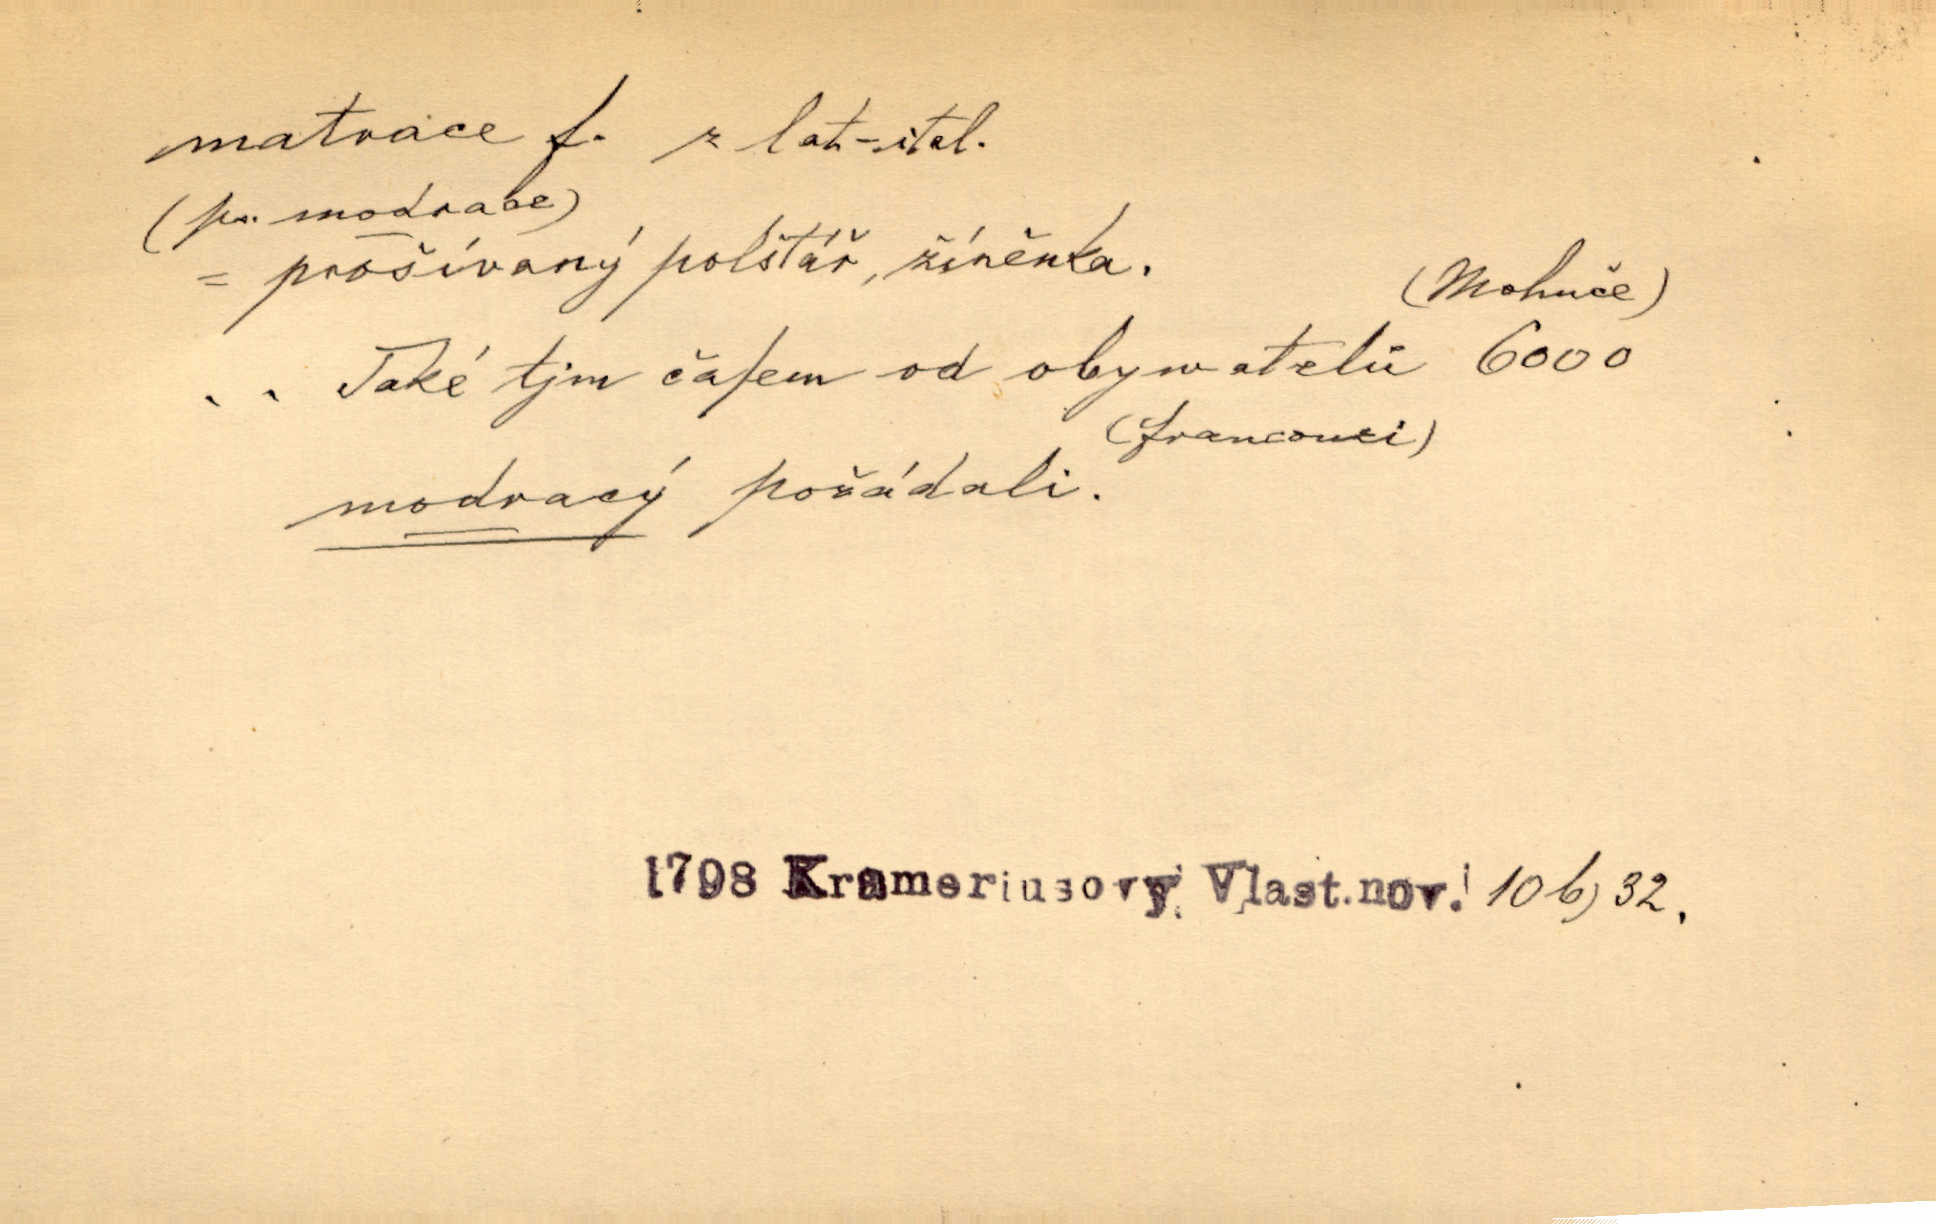 matrace f. z lat-ital.
(ps. modrace)
= prošívaný polštář, žíněnka.
(Mohuče)
.. Také tjm čaſem od obywatelů 6000
(francouzi)
modracý požádali.
1798 Krameriusovy Vlast.nov. 10 b) 32.